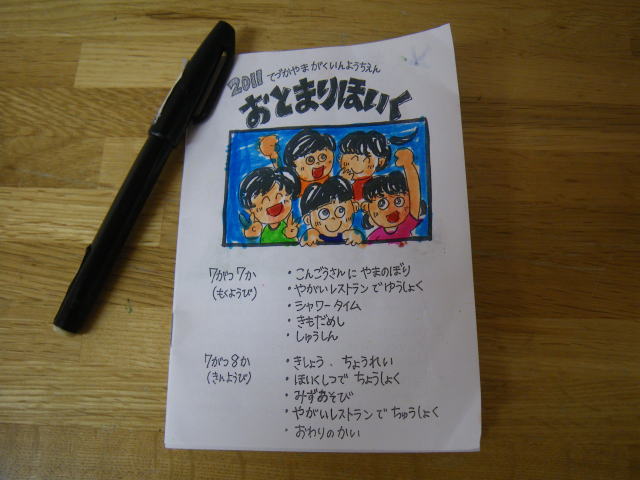 2011 てづかやまがくいんようちえん
おとまりほいく
7がつ7か
(もくようび)
・こんごうさんに やまのぼり
・やがいレストランでゆうしょく
・シャワータイム
・きもだめし
・しゅうしん
7がつ8か
(きんようび)
・きしょう、ちょうれい
・ほいくしつで ちょうしょく
・みずあそび
・やがいレストランで ちゅうしょく
・おわりのかい